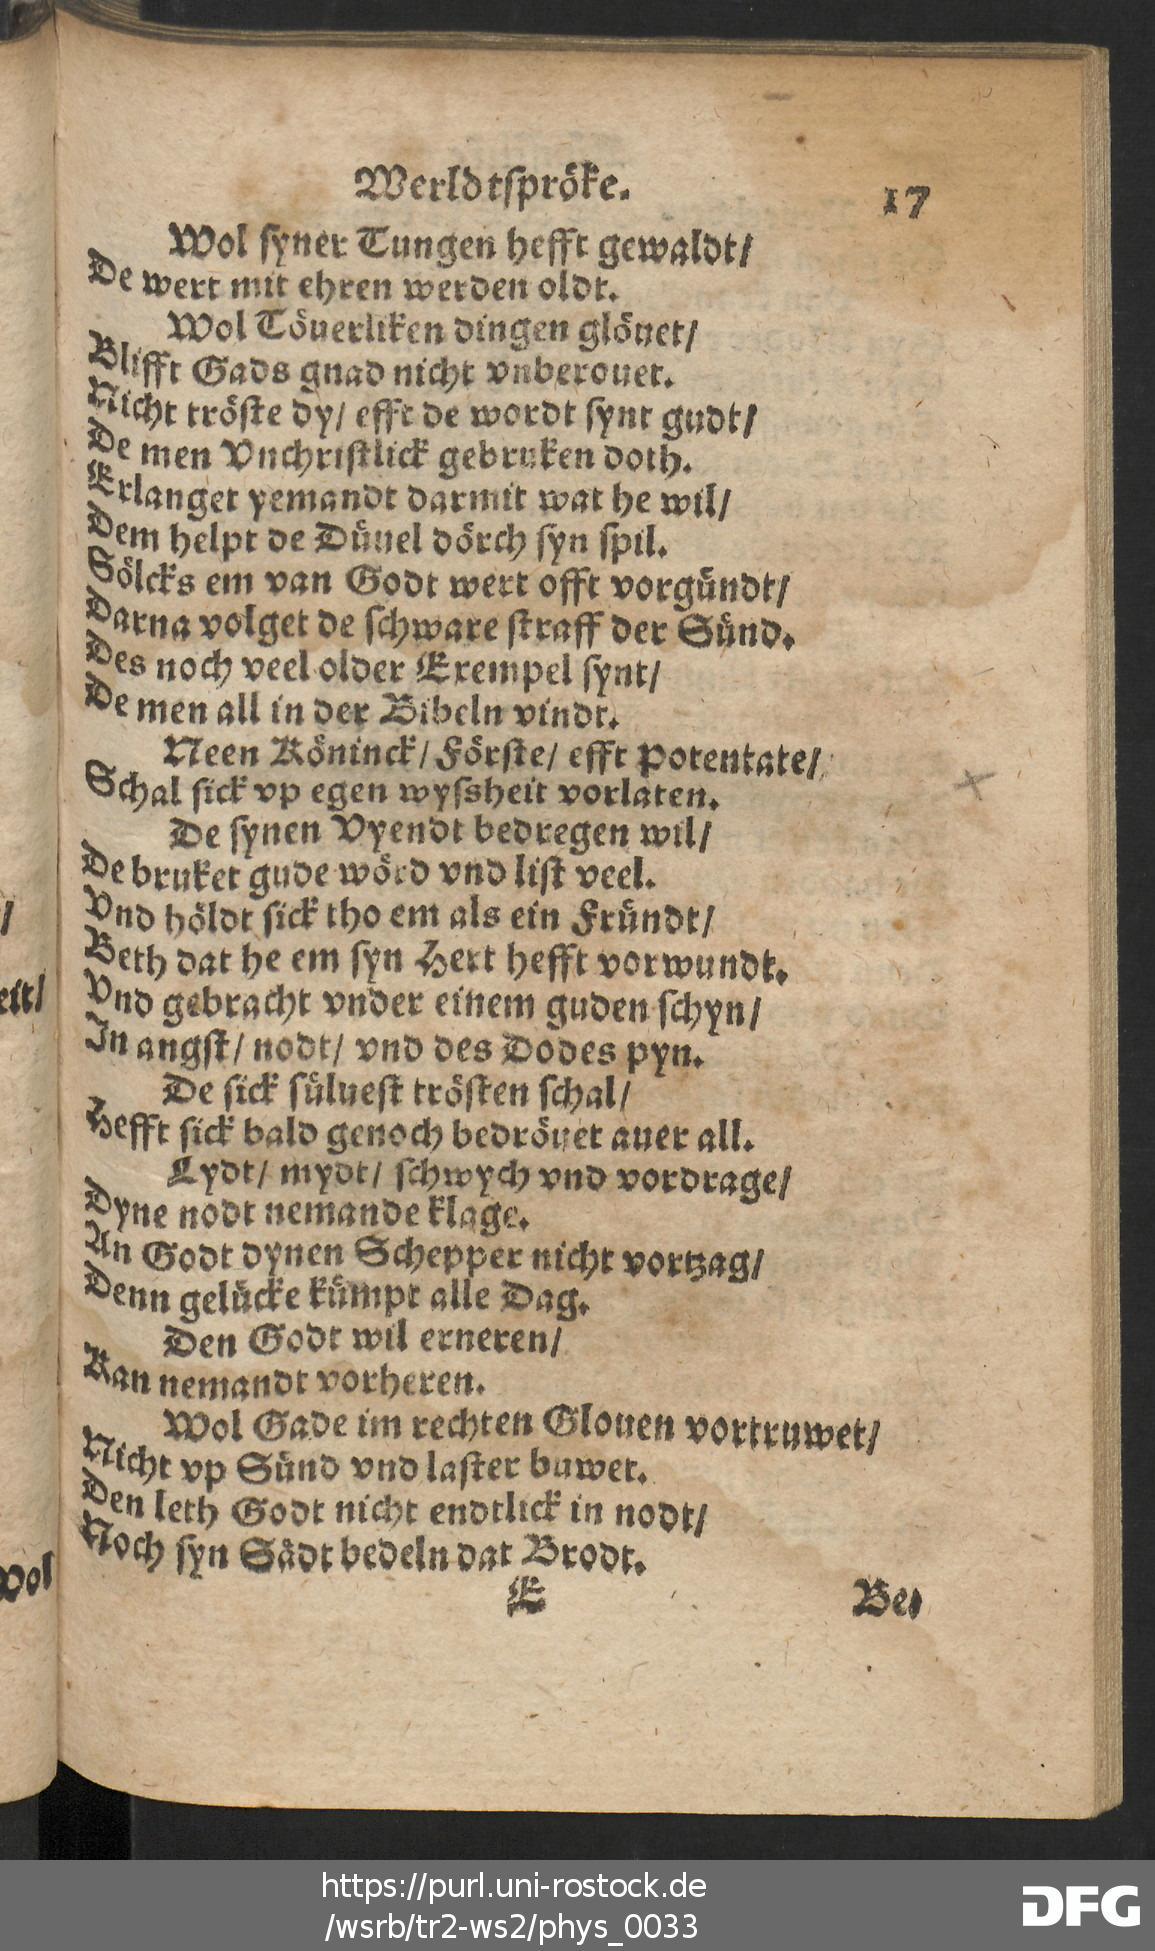 Werldtspröke. 17
Wol syner Tungen hefft gewaldt/
De wert mit ehren werden oldt.
Wol Töuerliken dingen glöuet/
Blifft Gads gnad nicht vnberouet.
Nicht tröste dy/ efft de wordt synt gudt/
De men Vnchristlick gebruken doth.
Erlanget yemandt darmit wat he wil/
Dem helpt de Düuel dörch syn spil.
Sölcks em van Godt wert offt vorgündt/
Darna volget de schware straff der Sünd.
Des noch veel older Exempel synt/
De men all in der Bibeln vindt.
Neen Köninck/ Förste/ efft Potentate/
Schal sick vp egen wyssheit vorlaten.
De synen Vyendt bedregen wil/
De bruket gude wörd vnd list veel.
Vnd höldt sick tho em als ein Fründt/
Beth dat he em syn Hert hefft vorwundt.
Vnd gebracht vnder einem guden schyn/
In angst/ nodt/ vnd des Dodes pyn.
De sick süluest trösten schal/
Hefft sick bald genoch bedröuet auer all.
Lydt/ mydt/ schwych vnd vordrage/
Dyne nodt nemande klage.
An Godt dynen Schepper nicht vortzag/
Denn gelücke kümpt alle Dag.
Den Godt wil erneren/
Kan nemandt vorheren.
Wol Gade im rechten Glouen vortruwet/
Nicht vp Sünd vnd laster buwet.
Den leth Godt nicht endtlick in nodt/
Noch syn Sädt bedeln dat Brodt.
E Be-
/
eit/
Wol
https://purl.uni-rostock.de
/wsrb/tr2-ws2/phys_0033
DFG